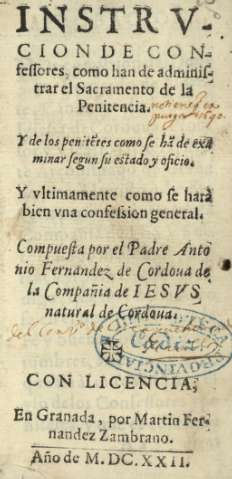 INSTRV-
CION DE CON-
fessores, como han de adminis-
trar el Sacramento de la
Penitencia.
Y de los penitẽtes como se hã de exa
minar segun su estado y oficio.
Y vltimamente como se hará
bien vna confession general.
Compuesta por el Padre Anto
nio Fernandez de Cordoua de
la Compañia de IESVS
natural de Cordoua.
CON LICENCIA,
En Granada, por Martin Fer-
nandez Zambrano.
Año de M. DC. XXII.